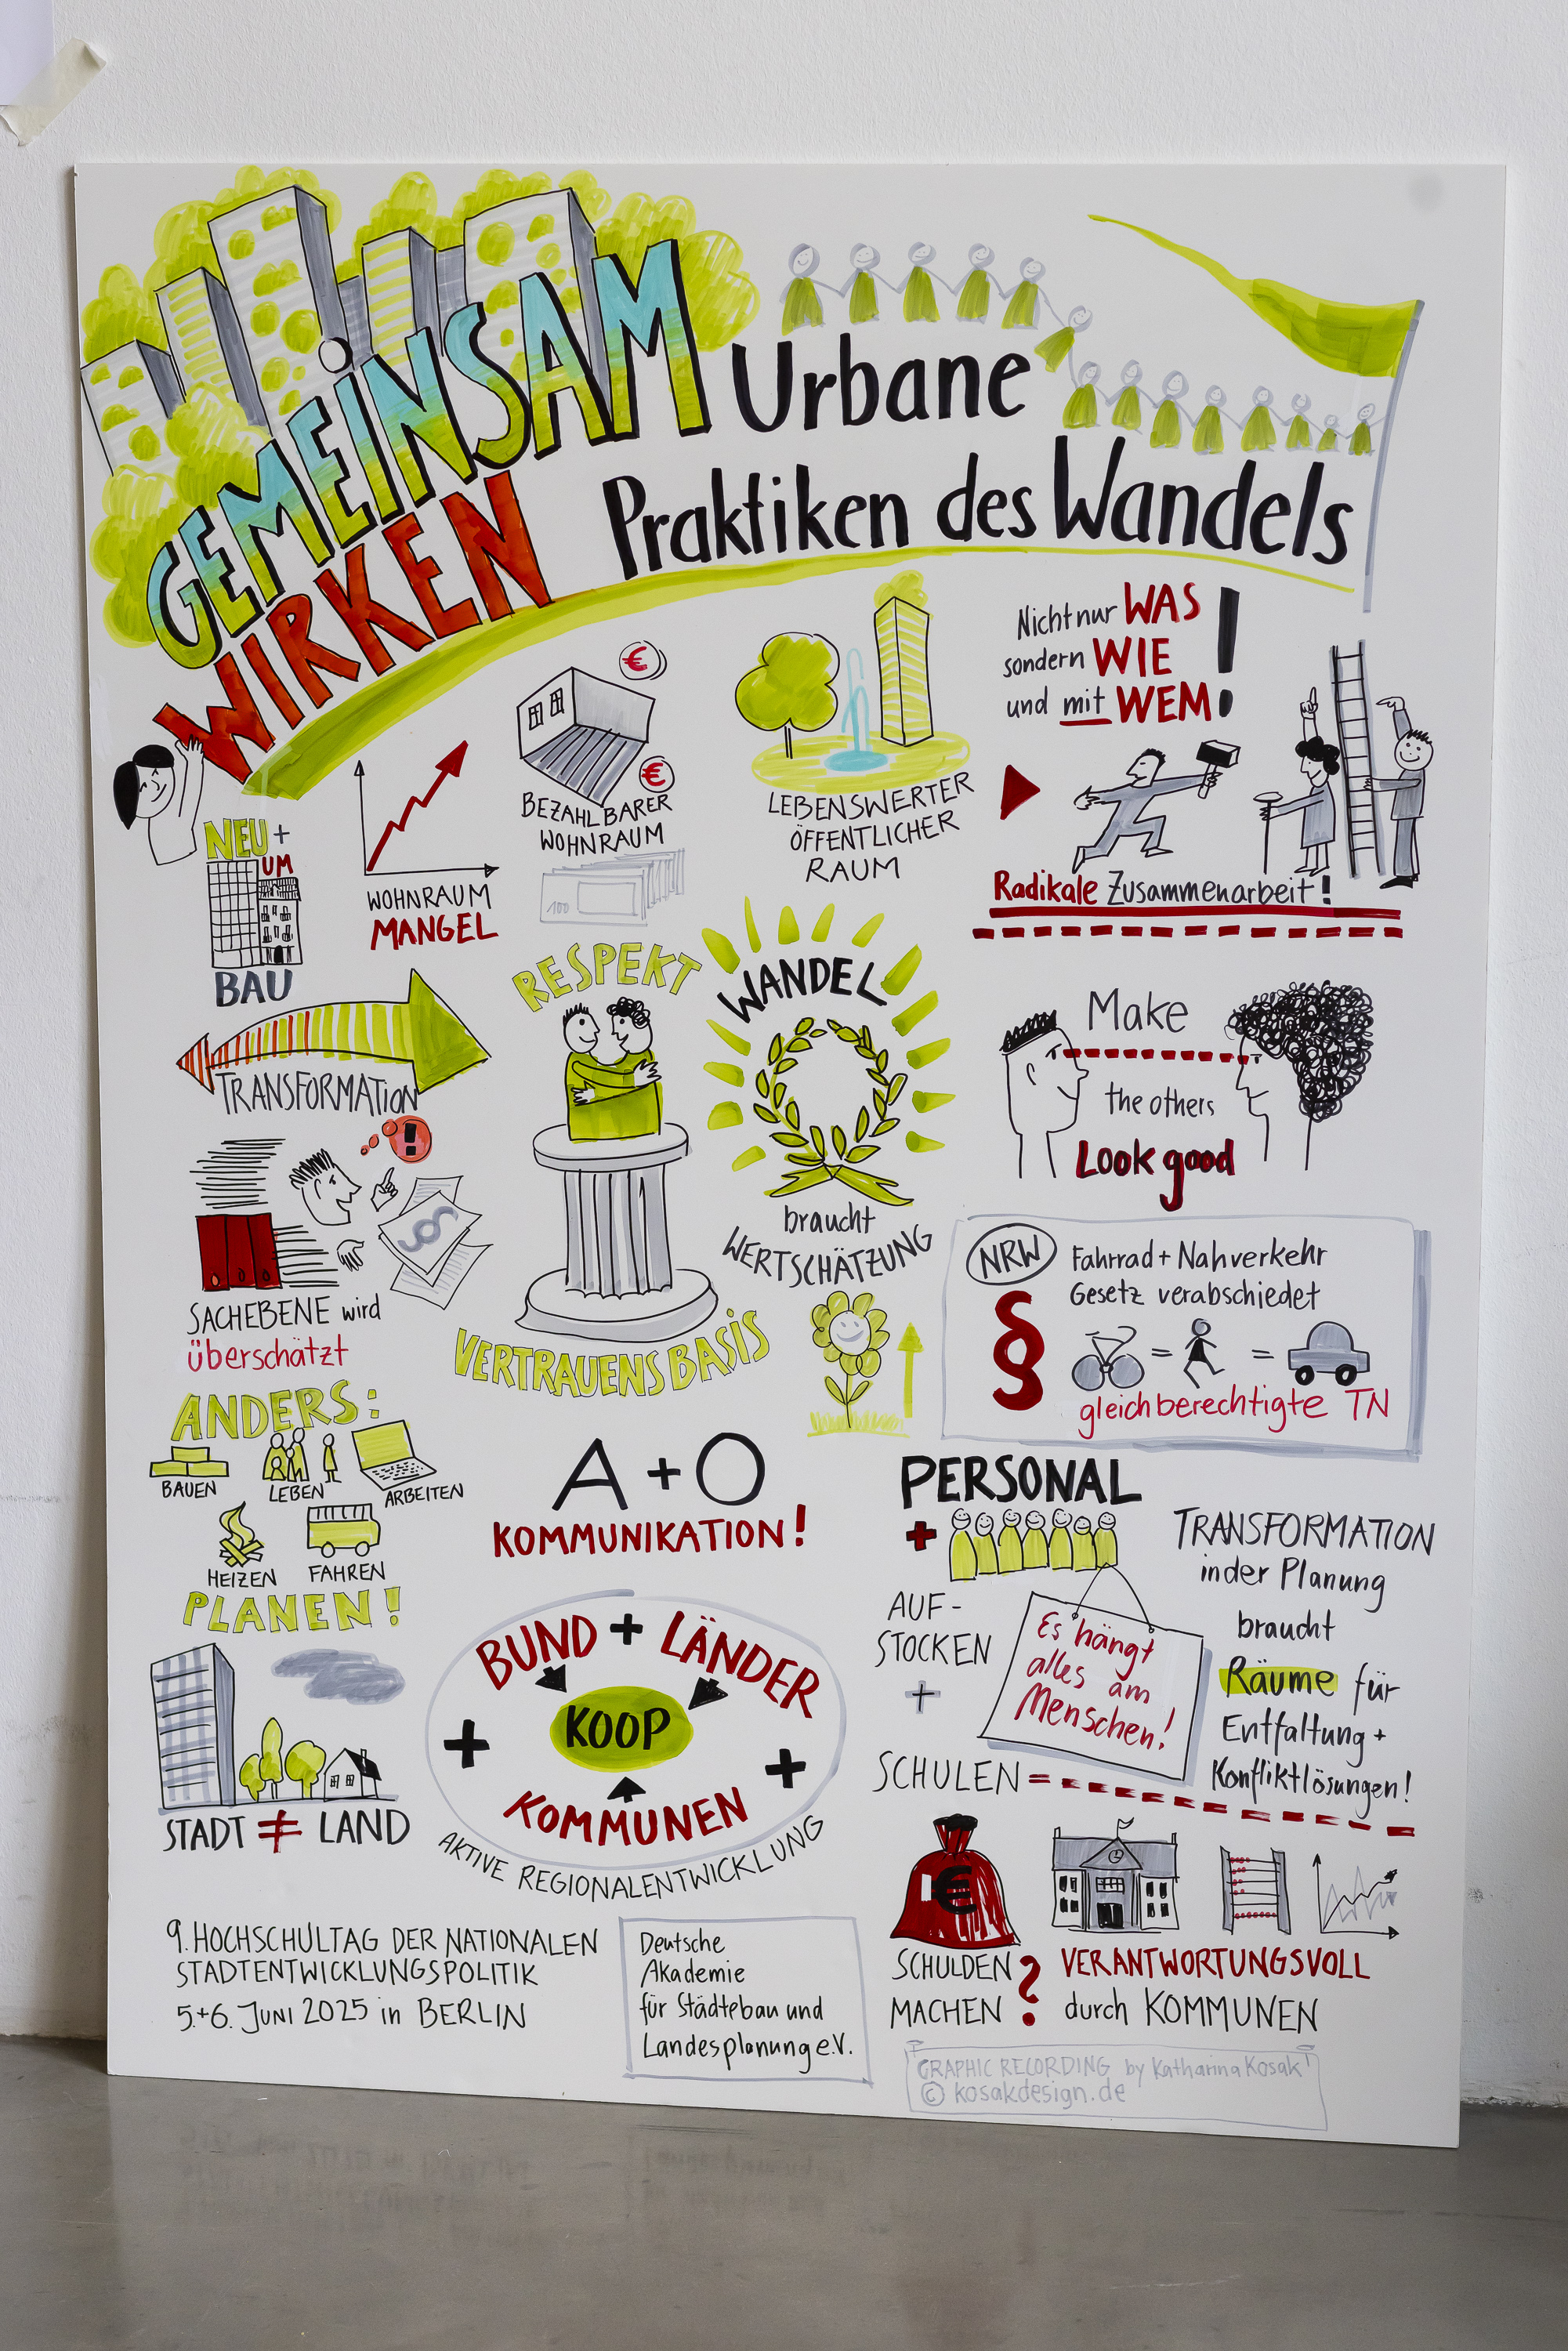 GEMEINSAM
WIRKEN
Urbane
Praktiken des Wandels
NEU +
UM
BAU
WOHNRAUM
MANGEL
€
€
BEZAHLBARER
WOHNRAUM
100
LEBENSWERTER
ÖFFENTLICHER
RAUM
Nicht nur WAS
sondern WIE
und mit WEM!
Radikale Zusammenarbeit!
TRANSFORMATION
!
§
SACHEBENE wird
überschätzt
RESPEKT
VERTRAUENSBASIS
WANDEL
braucht
WERTSCHÄTZUNG
Make
the others
Look good
NRW
Fahrrad + Nahverkehr
Gesetz verabschiedet
§
= =
gleichberechtigte TN
ANDERS:
BAUEN
LEBEN
ARBEITEN
HEIZEN
FAHREN
PLANEN!
A + O
KOMMUNIKATION!
STADT ≠ LAND
BUND + LÄNDER
+ KOOP +
KOMMUNEN
AKTIVE REGIONALENTWICKLUNG
PERSONAL
+
AUF-
STOCKEN
+
SCHULEN =
Es hängt
alles am
Menschen!
TRANSFORMATION
in der Planung
braucht
Räume für
Entfaltung +
Konfliktlösungen!
€
SCHULDEN
MACHEN ?
VERANTWORTUNGSVOLL
durch KOMMUNEN
9. HOCHSCHULTAG DER NATIONALEN
STADTENTWICKLUNGSPOLITIK
5.+6. JUNI 2025 in BERLIN
Deutsche
Akademie
für Städtebau und
Landesplanung e.V.
GRAPHIC RECORDING by Katharina Kosak
© kosakdesign.de